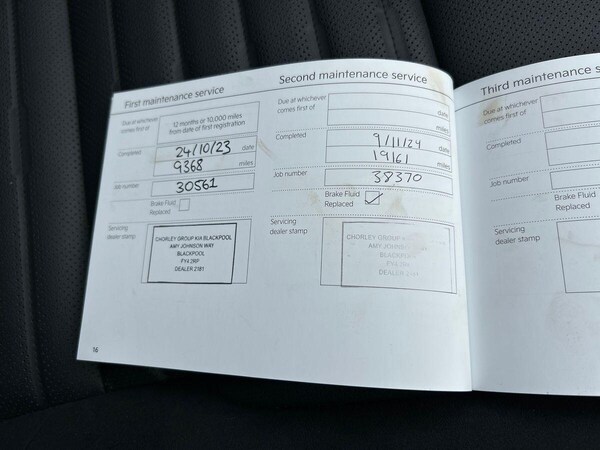 First maintenance service
Due at whichever
comes first of
12 months or 10,000 miles
from date of first registration
Completed
24/10/23 date
9368 miles
Job number
30561
Brake Fluid
Replaced
Servicing
dealer stamp
CHORLEY GROUP KIA BLACKPOOL
AMY JOHNSON WAY
BLACKPOOL
FY4 2RP
DEALER 2181
16
Second maintenance service
Due at whichever
comes first of
date
miles
Completed
9/11/24 date
19161 miles
Job number
38370
Brake Fluid
Replaced ✓
Servicing
dealer stamp
CHORLEY GROUP
AMY JOHNSON
BLACKPOOL
FY4 2RP
DEALER
Third maintenance s
Due at whichever
comes first of
Completed
Job number
Brake Fluid
Replaced
Servicing
dealer stamp